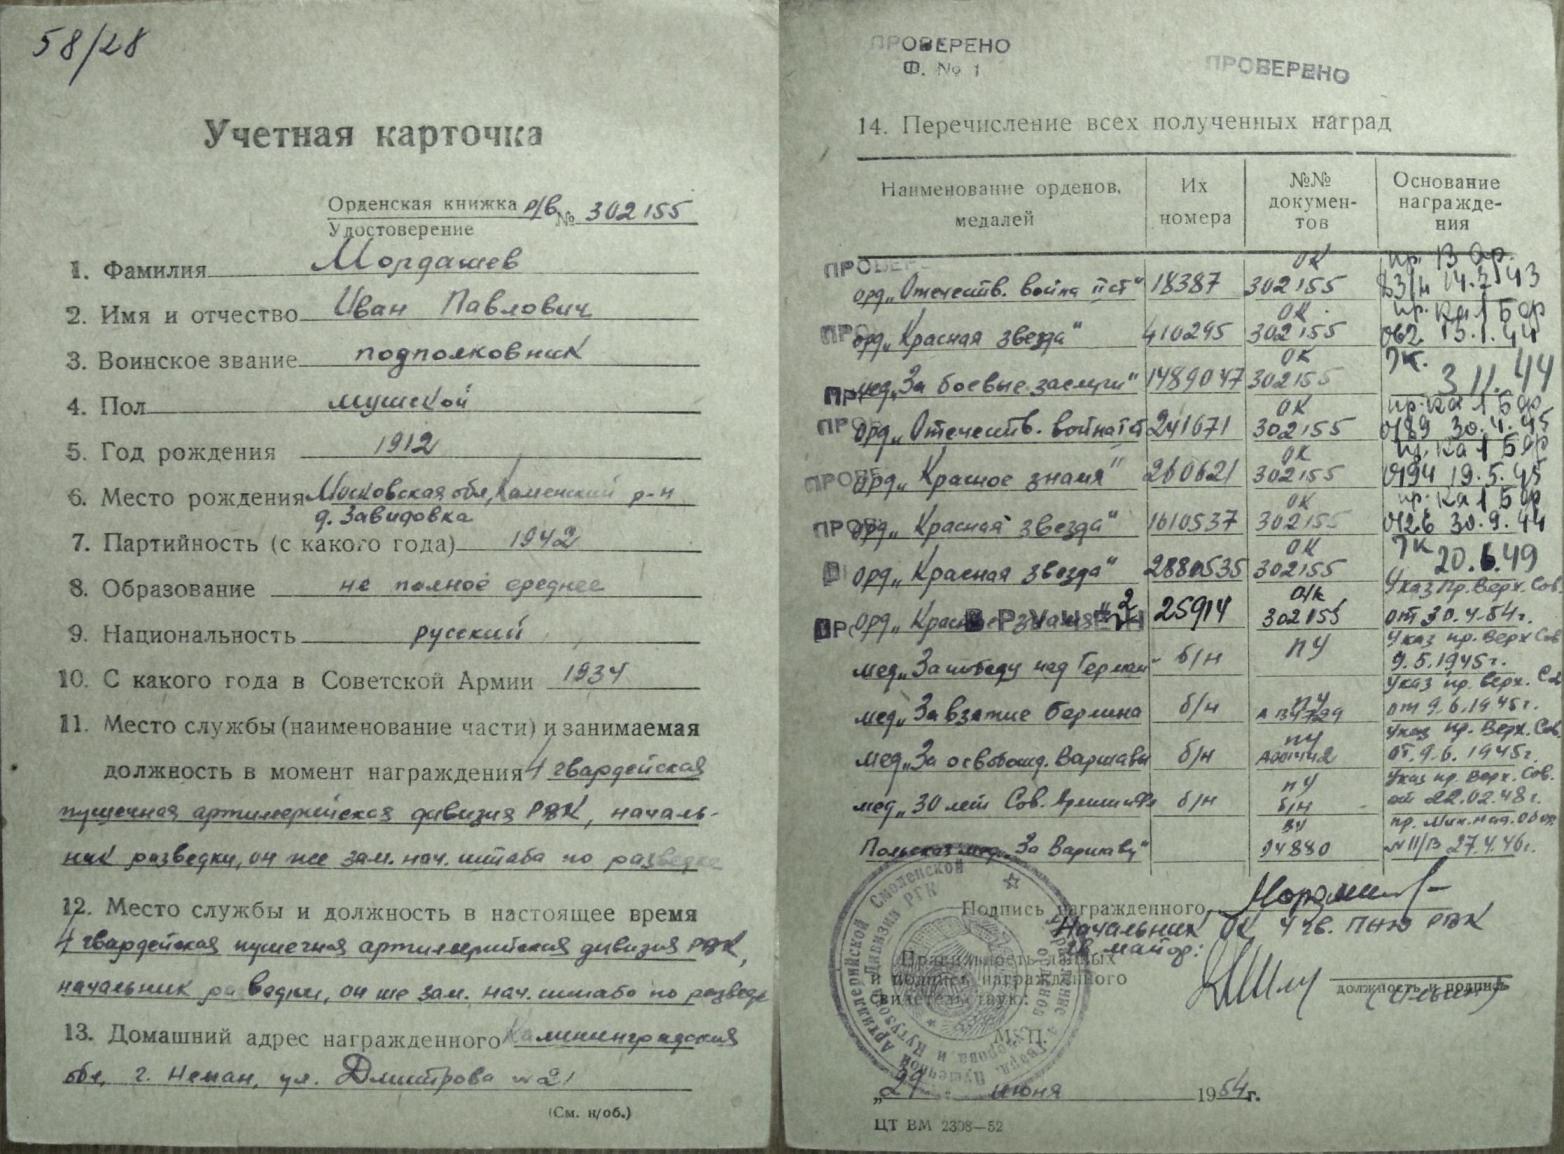 58/28
Учетная карточка
Орденская книжка р/в № 302155
Удостоверение
1. Фамилия Мордашев
2. Имя и отчество Иван Павлович
3. Воинское звание подполковник
4. Пол мужской
5. Год рождения 1912
6. Место рождения Московская обл, Каменский р-н
д. Завидовка
7. Партийность (с какого года) 1942
8. Образование не полное среднее
9. Национальность русский
10. С какого года в Советской Армии 1934
11. Место службы (наименование части) и занимаемая
должность в момент награждения 4 гвардейская
пушечная артиллерийская дивизия РВК, началь-
ник разведки, он же зам. нач. штаба по разведке
12. Место службы и должность в настоящее время
4 гвардейская пушечная артиллерийская дивизия РВК,
начальник разведки, он же зам. нач. штаба по разведк
13. Домашний адрес награжденного Калининградская
обл, г. Неман, ул. Дмитрова № 21
(См. н/об.)
ПРОВЕРЕНО
Ф. № 1
ПРОВЕРЕНО
14. Перечисление всех полученных наград
Наименование орденов, медалей
Их номера
№№ документов
Основание награждения
ПРОВЕР
орд „Отечеств. война II ст" 18387 ОК 302155 пр. В Ар. 14.7.43
ПРО
орд „Красная звезда" 410295 ОК 302155 пр. Ка 1 Бф 062 15.1.44
ПР
мед „За боевые заслуги" 1489047 ОК 302155 3.11.44
ПРОВ
орд „Отечеств. война 241671 ОК 302155 пр. Ка 1 Бф 0189 30.4.45
ПРОВЕ
орд „Красное знамя" 260621 ОК 302155 пр. Ка 1 Бф 0194 19.5.45
ПРОВ
орд „Красная звезда" 1610537 ОК 302155 пр. Ка 1 Бф 0126 30.9.44
орд „Красная звезда" 2880535 ОК 302155 20.6.49
ПРО
орд „Красное знамя" 2 ВРУЧЕН 25914 о/к 302155 Указ Пр. Верх. Сов. от 30.4.54г.
мед „За победу над Герман- б/н ПУ Указ пр. Верх Сов 9.5.1945г.
мед „За взятие Берлина б/н ПУ Указ пр. Верх. Сов от 9.6.1945г.
мед „За освобожд. Варшавы б/н ПУ Указ пр. Верх. Сов. от 9.6.1945г.
мед „30 лет Сов. Армии б/н ПУ б/н Указ пр. Верх. Сов. от 22.02.48г.
Польская мед „За Варшаву" ВУ 94880 пр. Мин. Нац. Обор. № 11/В 27.4.46г.
Подпись награжденного
Начальник ОК 4 гв. ПАД РВК
гв. майор:
Правильность данных
и подпись награжденного
свидетельствую:
должность и подпись
(Ильин)
М. П.
„29 июня 1954г.
ЦТ ВМ 2308—52